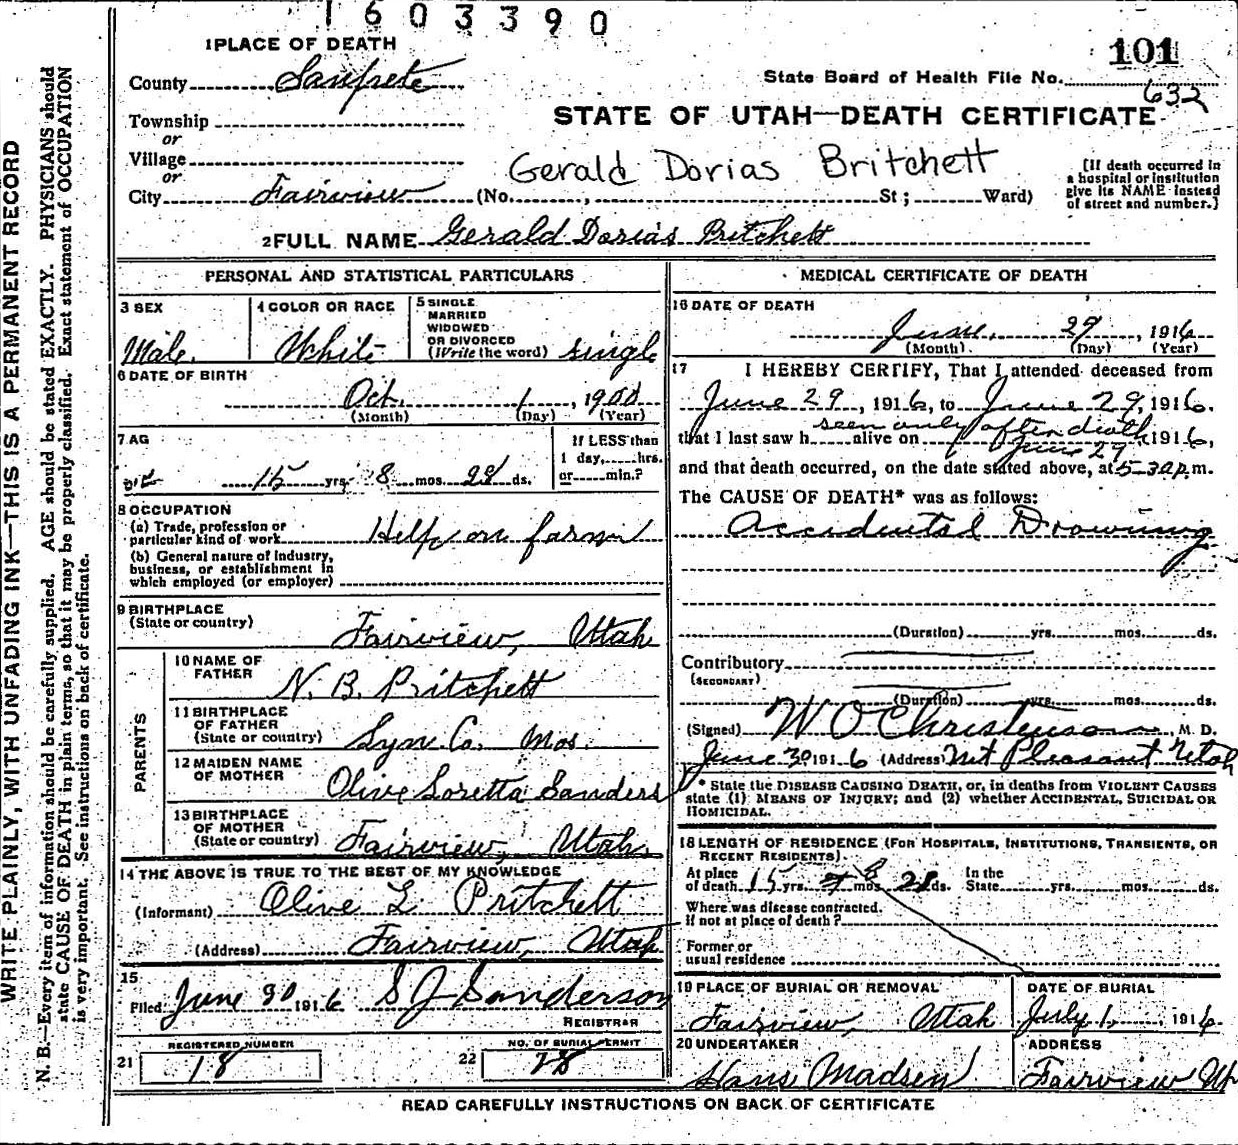 1603390
1 PLACE OF DEATH
101
County Sanpete
State Board of Health File No. 632
Township
STATE OF UTAH—DEATH CERTIFICATE
or
Village
Gerald Dorias Britchett
or
City Fairview (No. , St; Ward)
[If death occurred in
a hospital or institution
give its NAME instead
of street and number.]
2 FULL NAME Gerald Dorias Pritchett
PERSONAL AND STATISTICAL PARTICULARS
3 SEX
Male.
4 COLOR OR RACE
White
5 SINGLE
MARRIED
WIDOWED
OR DIVORCED
(Write the word) single
6 DATE OF BIRTH
Oct. 1, 1900
(Month) (Day) (Year)
7 AG
15 yrs. 8 mos. 28 ds.
If LESS than
1 day, hrs.
or min.?
8 OCCUPATION
(a) Trade, profession or
particular kind of work Help on farm
(b) General nature of industry,
business, or establishment in
which employed (or employer)
9 BIRTHPLACE
(State or country)
Fairview, Utah
PARENTS
10 NAME OF
FATHER
N. B. Pritchett
11 BIRTHPLACE
OF FATHER
(State or country) Lyn. Co. Mos.
12 MAIDEN NAME
OF MOTHER
Olive Loretta Sanders
13 BIRTHPLACE
OF MOTHER
(State or country) Fairview, Utah.
14 THE ABOVE IS TRUE TO THE BEST OF MY KNOWLEDGE
(Informant) Olive L Pritchett
(Address) Fairview, Utah
15
Filed June 30 1916 S J Sanderson
REGISTRAR
REGISTERED NUMBER
21 18
NO. OF BURIAL PERMIT
22 28
MEDICAL CERTIFICATE OF DEATH
16 DATE OF DEATH
June. 29, 1916
(Month) (Day) (Year)
17 I HEREBY CERTIFY, That I attended deceased from
June 29, 1916, to June 29, 1916.
seen only after death
that I last saw h alive on 1916,
June 29
and that death occurred, on the date stated above, at 5-30 p.m.
The CAUSE OF DEATH* was as follows:
Accidental Drowning
(Duration) yrs. mos. ds.
Contributory
(SECONDARY)
(Duration) yrs. mos. ds.
(Signed) W O Christenson, M. D.
June 30 1916 (Address) Mt Pleasant Utah
* State the DISEASE CAUSING DEATH, or, in deaths from VIOLENT CAUSES
state (1) MEANS OF INJURY; and (2) whether ACCIDENTAL, SUICIDAL OR
HOMICIDAL.
18 LENGTH OF RESIDENCE (FOR HOSPITALS, INSTITUTIONS, TRANSIENTS, OR
RECENT RESIDENTS).
At place
of death 15 yrs. 8 mos. 28 ds.
In the
State yrs. mos. ds.
Where was disease contracted.
if not at place of death?
Former or
usual residence
19 PLACE OF BURIAL OR REMOVAL
Fairview, Utah
DATE OF BURIAL
July 1, 1916
20 UNDERTAKER
Hans Madsen
ADDRESS
Fairview Ut
READ CAREFULLY INSTRUCTIONS ON BACK OF CERTIFICATE
WRITE PLAINLY, WITH UNFADING INK—THIS IS A PERMANENT RECORD
N. B.—Every item of information should be carefully supplied. AGE should be stated EXACTLY. PHYSICIANS should
state CAUSE OF DEATH in plain terms, so that it may be properly classified. Exact statement of OCCUPATION
is very important. See instructions on back of certificate.